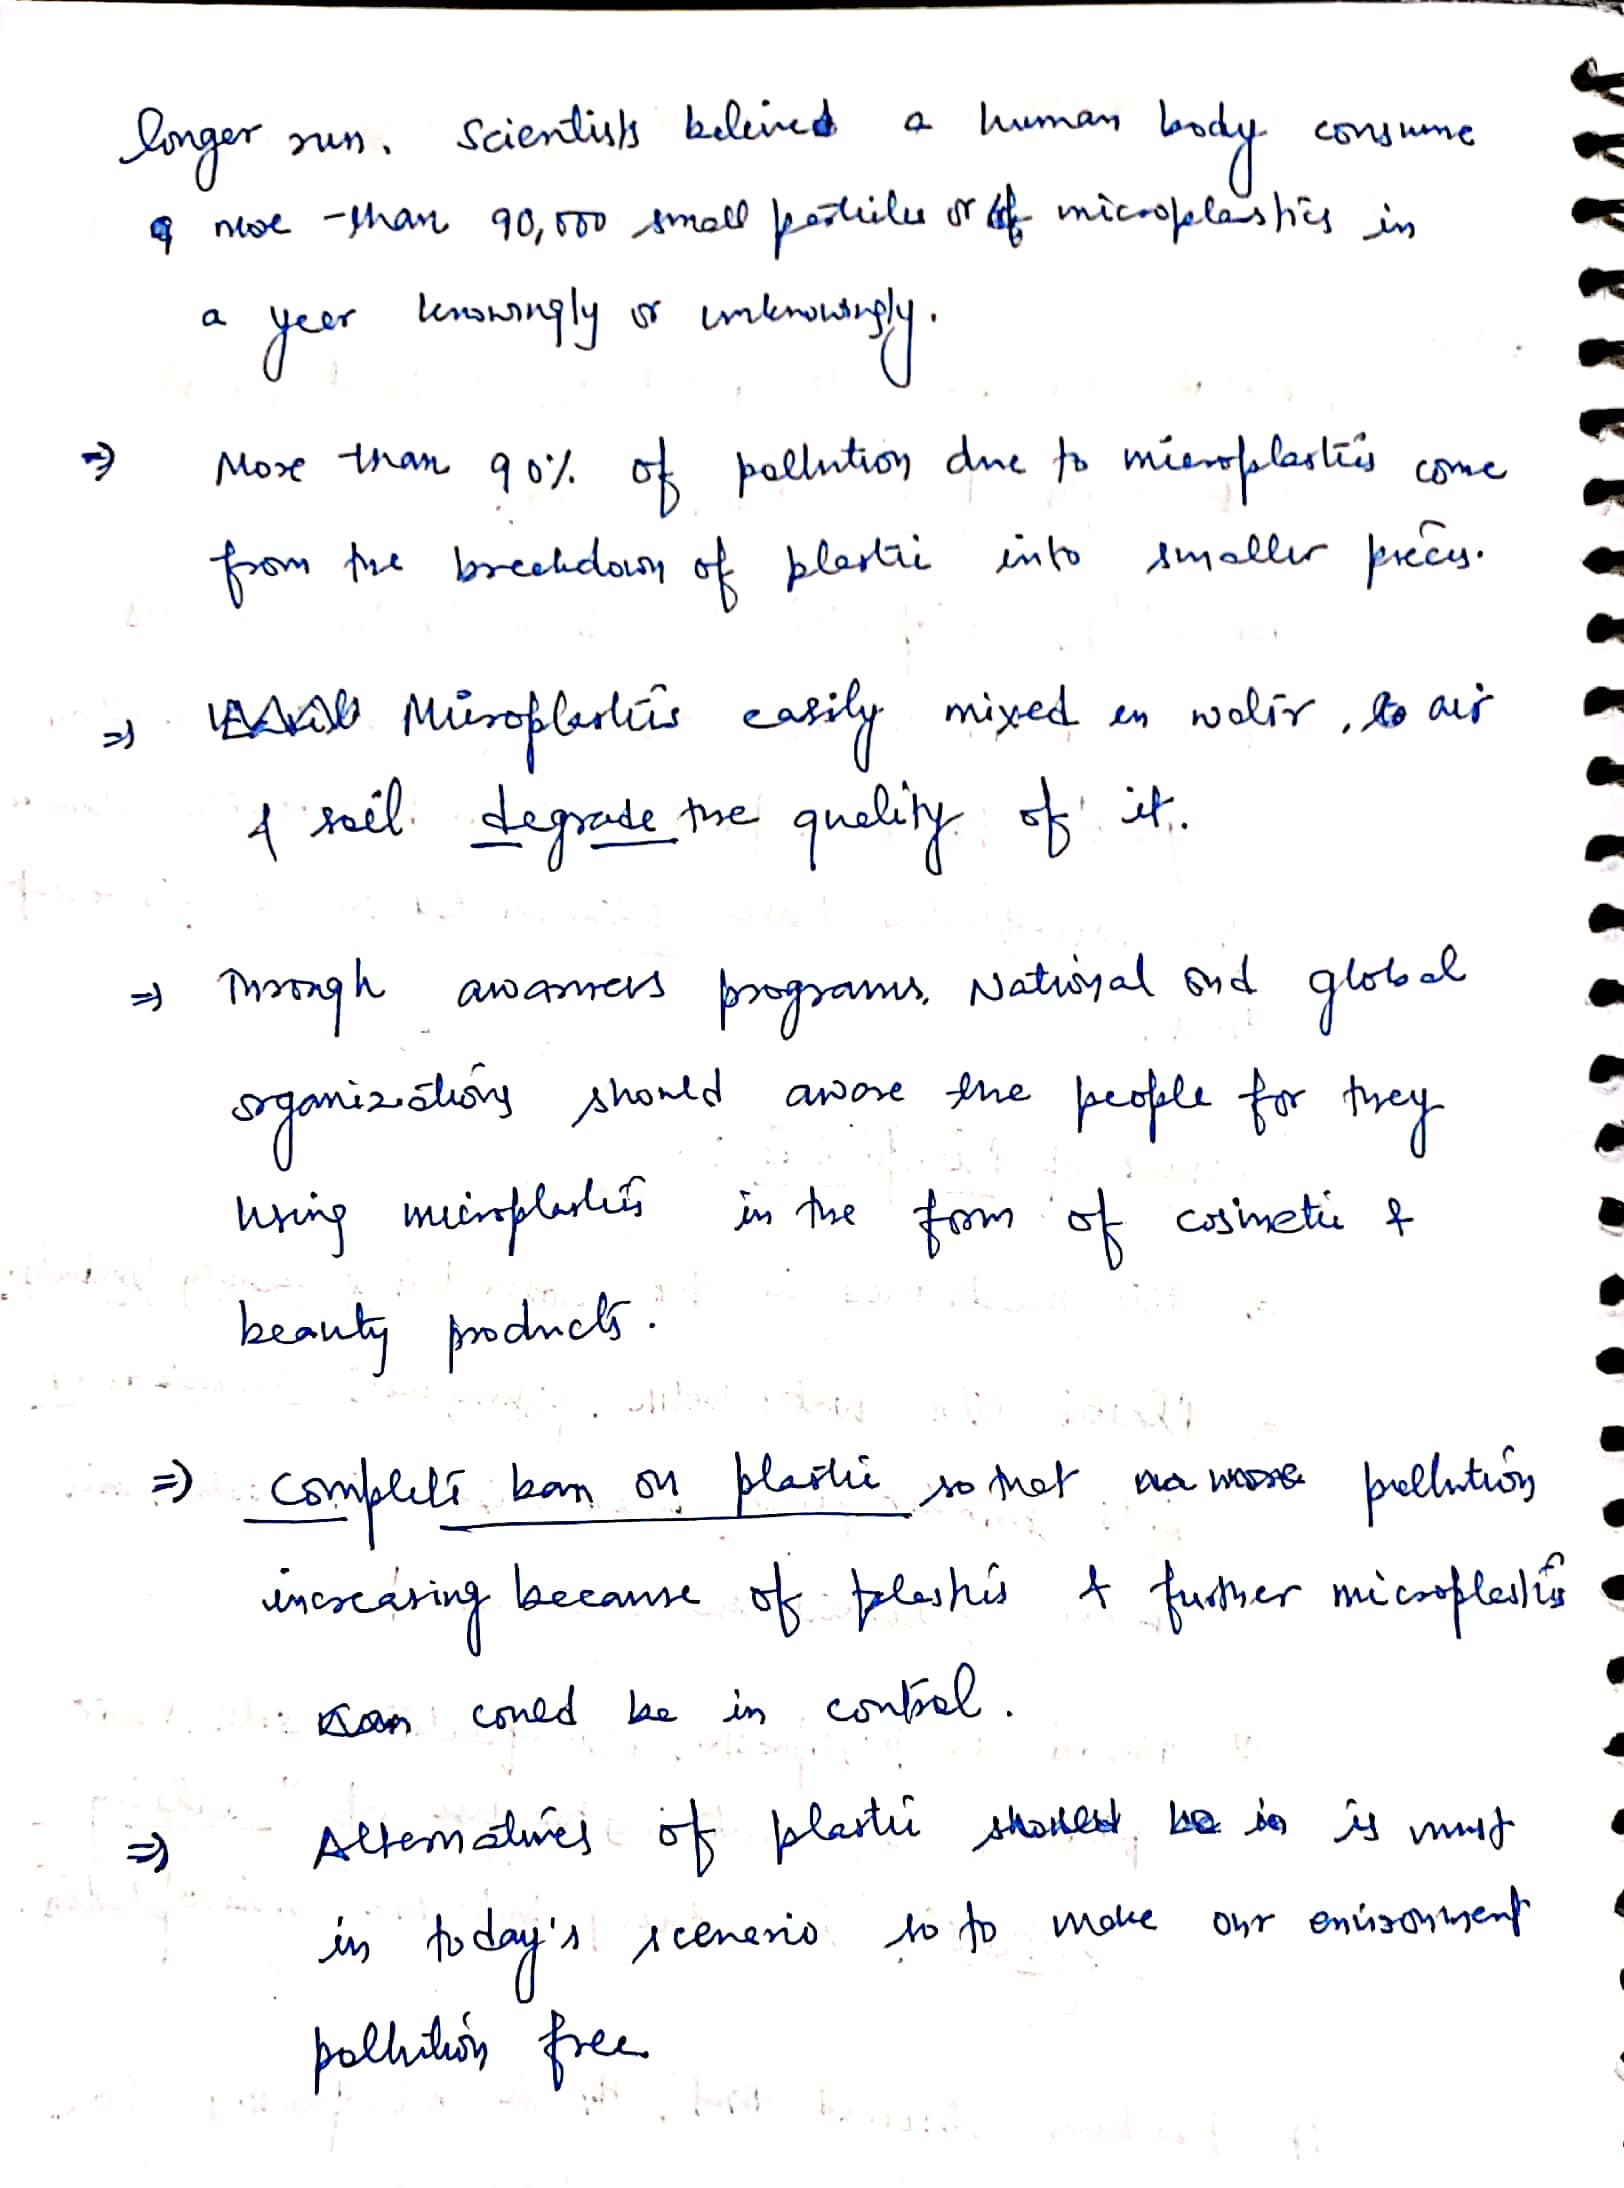 longer run. Scientists beleived a human body consume
more than 90,000 small particles or of microplastics in
a year knowingly or unknowingly.
⇒ More than 90% of pollution due to microplastics come
from the breakdown of plastic into smaller pieces.
⇒ Microplastics easily mixed in water, to air
& soil degrade the quality of it.
⇒ Through awarness programs, National and global
organizations should aware the people for they
using microplastics in the form of cosmetic &
beauty products.
⇒ Complete ban on plastic so that no more pollution
increasing because of plastics & further microplastics
could be in control.
⇒ Alternatives of plastic is must
in today's scenerio so to make our environment
pollution free